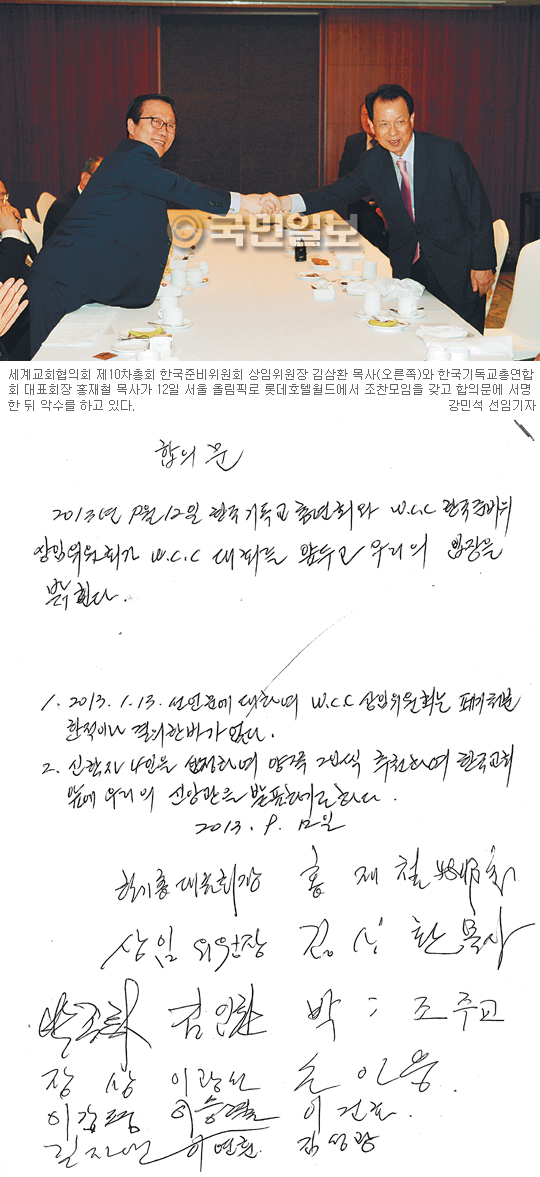 ©국민일보
세계교회협의회 제10차총회 한국준비위원회 상임위원장 김삼환 목사(오른쪽)와 한국기독교총연합
회 대표회장 홍재철 목사가 12일 서울 올림픽로 롯데호텔월드에서 조찬모임을 갖고 합의문에 서명
한 뒤 악수를 하고 있다. 강민석 선임기자
합의문
2013년 9월 12일 한국기독교총연합회와 W.C.C 한국준비위
상임위원회가 W.C.C 대회를 앞두고 우리의 입장을
밝힌다.
1. 2013. 1. 13. 선언문에 대하여 W.C.C 상임위원회는 폐기처분
한적이나 결의한바가 없다.
2. 신학자 4인을 선정하여 양쪽 2인씩 추천하여 한국교회
앞에 우리의 신앙관을 발표하기로 하다.
2013. 9. 12일
한기총 대표회장 홍재철
상임위원장 김삼환 목사
박종화 김인환 박 조주교
장상 이광선 손인웅
이강평 이승렬 이건호
길자연 이연환 김성광